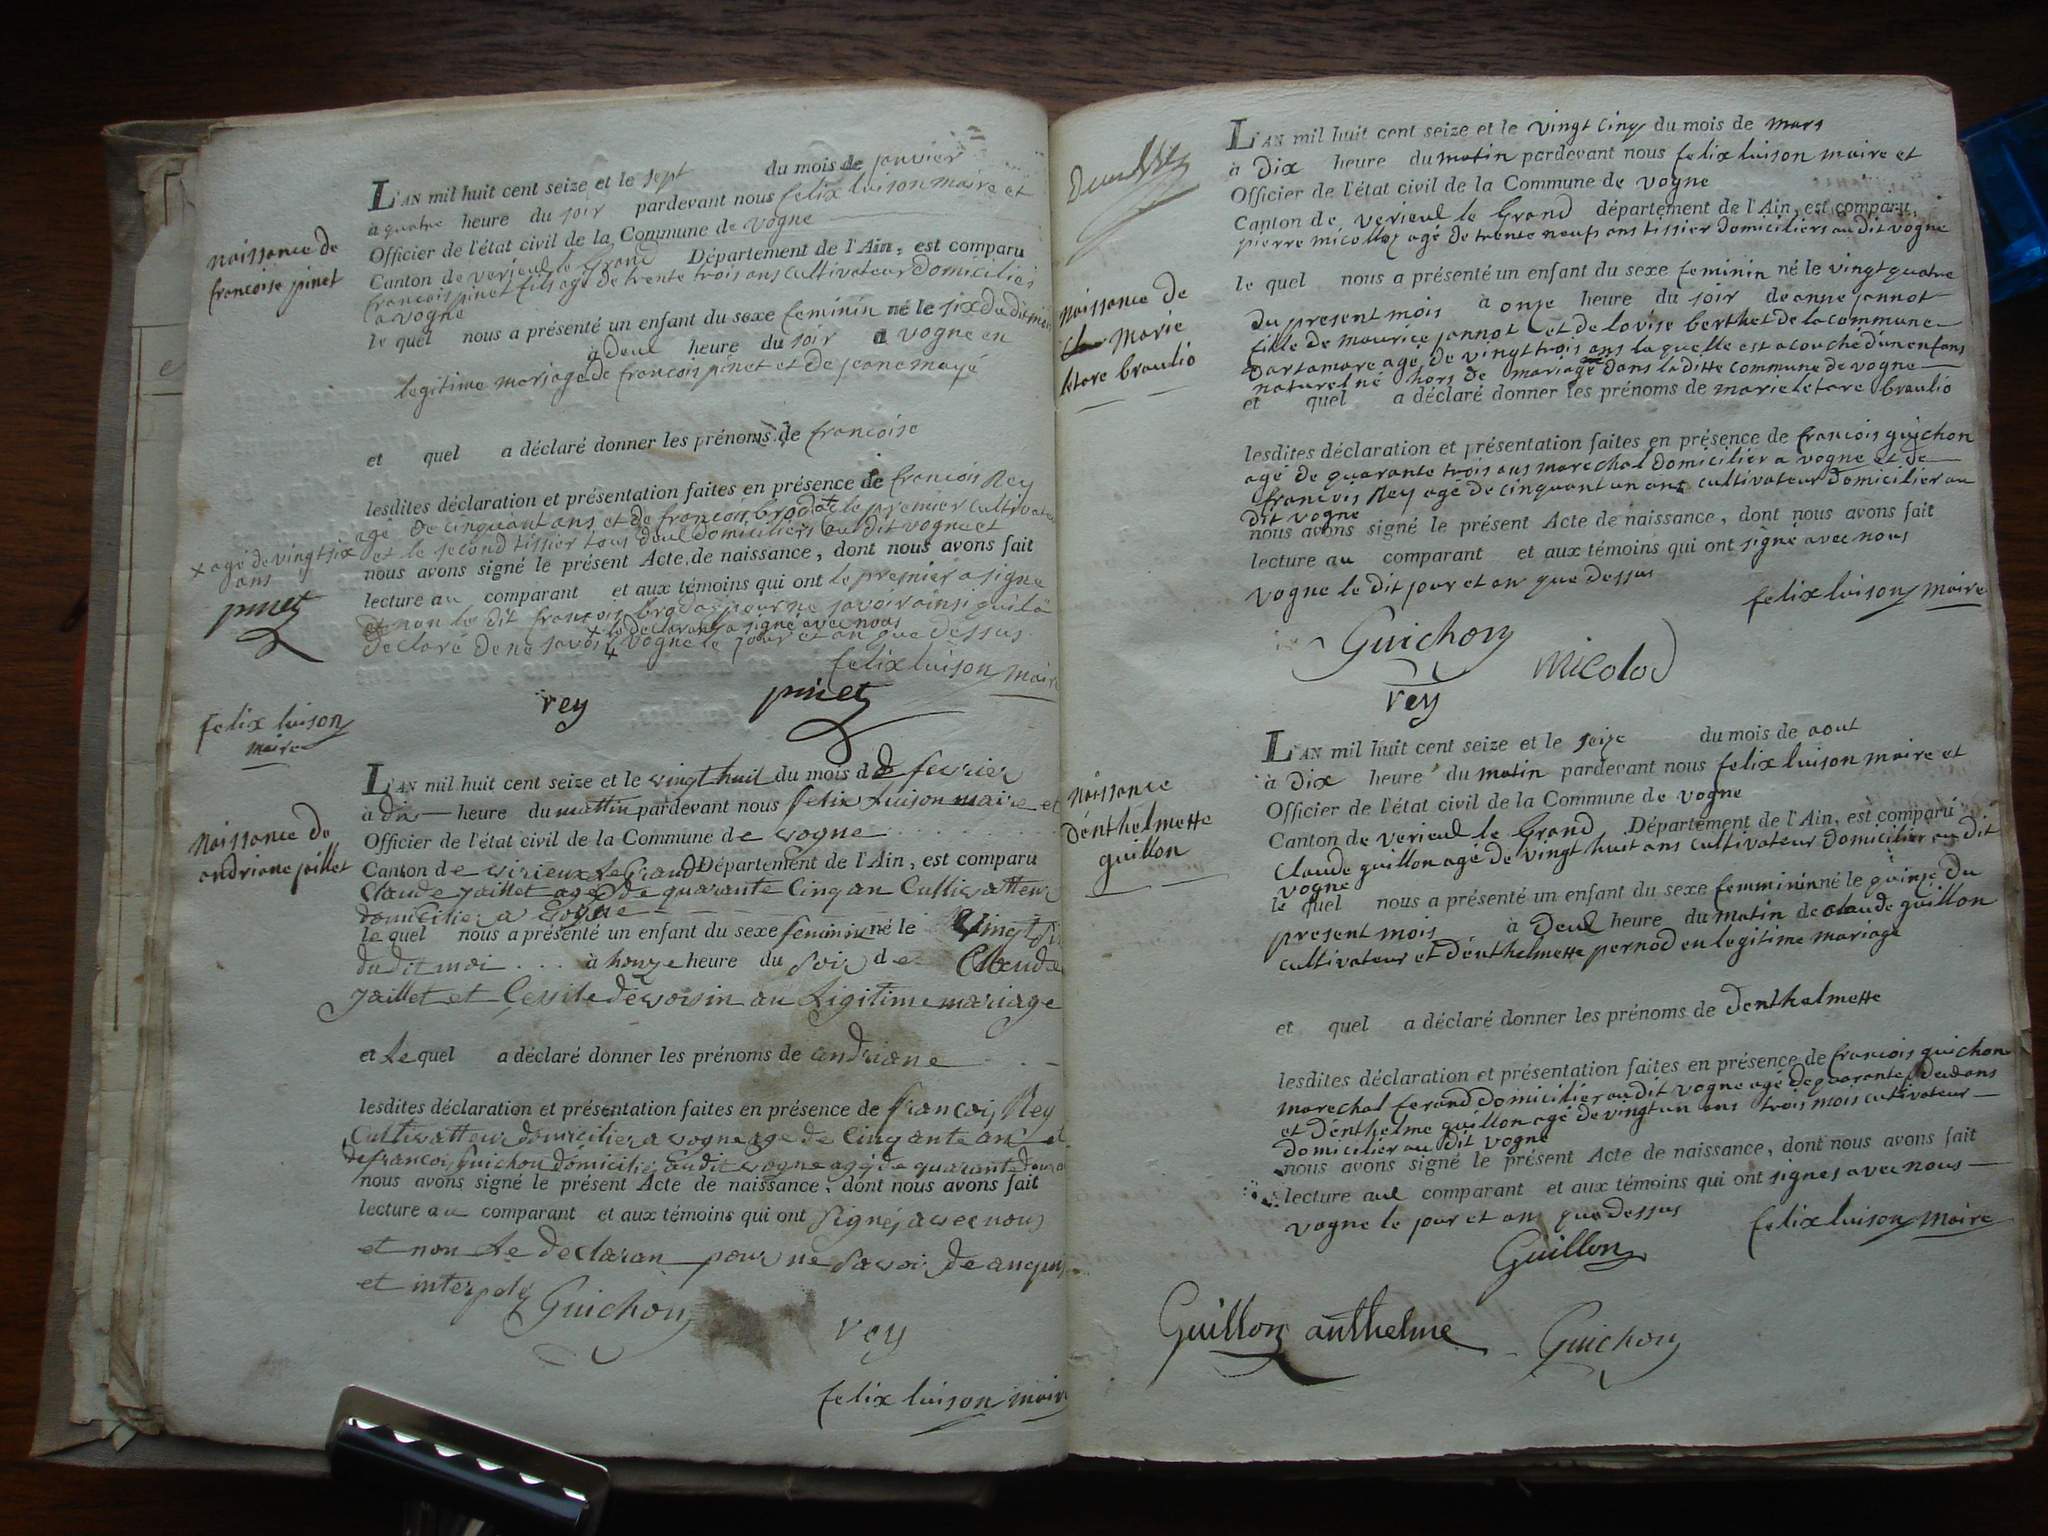 naissance de
francoise pinet
L'AN mil huit cent seize et le sept du mois de janvier
à quatre heure du soir pardevant nous felix luison maire et
Officier de l'état civil de la Commune de vogne
Canton de verieul le Grand Département de l'Ain, est comparu
francois pinet fils agé de trente trois ans cultivateur domiciliés
a vogne
le quel nous a présenté un enfant du sexe feminin né le six du dit mois
à deul heure du soir a vogne en
legitime mariage de francois pinet et de jeane mayé
et quel a déclaré donner les prénoms de francoise
lesdites déclaration et présentation faites en présence de francois Rey
agé de cinquant ans et de francois brodat + le premier cultivateur
et le second tissier tous deul domiciliers au dit vogne et
+ agé de vingt six
ans
pinet
nous avons signé le présent Acte de naissance, dont nous avons fait
lecture au comparant et aux témoins qui ont le premier a signe
et non le dit francois brodat pour ne savoir ainsi quil a
declaré de ne savoir + le declarant a signe avec nous
vogne le jour et an que dessus
felix luison maire
rey pinet
felix luison
maire
naissance de
andriane jaillet
L'AN mil huit cent seize et le vingt huit du mois de fevrier
à dix heure du mattin pardevant nous felix Luison maire et
Officier de l'état civil de la Commune de vogne
Canton de virieux Le Grand Département de l'Ain, est comparu
Claude jaillet agé de quarante Cinq an Cultivatteur
domicilier a vogne
le quel nous a présenté un enfant du sexe feminin né le vingt six
du dit moi à honze heure du Soir de Claude
jaillet et Cessile devoisin au Ligitime mariage
et Le quel a déclaré donner les prénoms de andriane
lesdites déclaration et présentation faites en présence de françois Rey
Cultivatteur domicilier a vogne age de Cinqante an et
de francois Guichon domicilié audit vogne agé de quarante deux an
nous avons signé le présent Acte de naissance, dont nous avons fait
lecture au comparant et aux témoins qui ont Signés avec nous
et non Le declaran pour ne Savoir de anquis
et interpelé
Guichon rey
felix luison maire
naissance de
Marie
letare braulio
L'AN mil huit cent seize et le vingt cinq du mois de mars
à dix heure du matin pardevant nous felix luison maire et
Officier de l'état civil de la Commune de vogne
Canton de verieul le Grand département de l'Ain, est comparu,
pierre micollox agé de trente neufs ans tissier domiciliers au dit vogne
le quel nous a présenté un enfant du sexe feminin né le vingt quatre
du present mois à onze heure du soir de anne jannot
fille de maurice jannot et de lovise berthet de la commune
dartamare agé de vingt trois ans la quelle est acouché d'un enfans
naturel né hors de mariage dans la ditte commune de vogne
et quel a déclaré donner les prénoms de marie letare braulio
lesdites déclaration et présentation faites en présence de francois guichon
agé de quarante trois ans marechal domicilier a vogne et de
francois Rey agé de cinquant un ans cultivateur domicilier au
dit vogne
nous avons signé le présent Acte de naissance, dont nous avons fait
lecture au comparant et aux témoins qui ont signé avec nous
vogne le dit jour et an que dessus
felix luison maire
Guichon micolod
rey
naissance
dénthelmette
guillon
L'AN mil huit cent seize et le seize du mois de aout
à dix heure du matin pardevant nous felix luison maire et
Officier de l'état civil de la Commune de vogne
Canton de verieul le Grand Département de l'Ain, est comparu
Claude guillon agé de vingt huit ans cultivateur domicilier au dit
vogne
le quel nous a présenté un enfant du sexe femminin né le quinze du
present mois à deul heure du matin de claude guillon
cultivateur et dénthelmette pernod en legitime mariage
et quel a déclaré donner les prénoms de denthelmette
lesdites déclaration et présentation faites en présence de francois guichon
marechal ferand domicilier au dit vogne agé de quarante deux ans
et dénthelme guillon agé de vingt un ans trois mois cultivateur
domicilier au dit vogne
nous avons signé le présent Acte de naissance, dont nous avons fait
lecture aul comparant et aux témoins qui ont signes avec nous
vogne le jour et an que dessus
felix luison maire
Guillon
Guillon anthelme Guichon